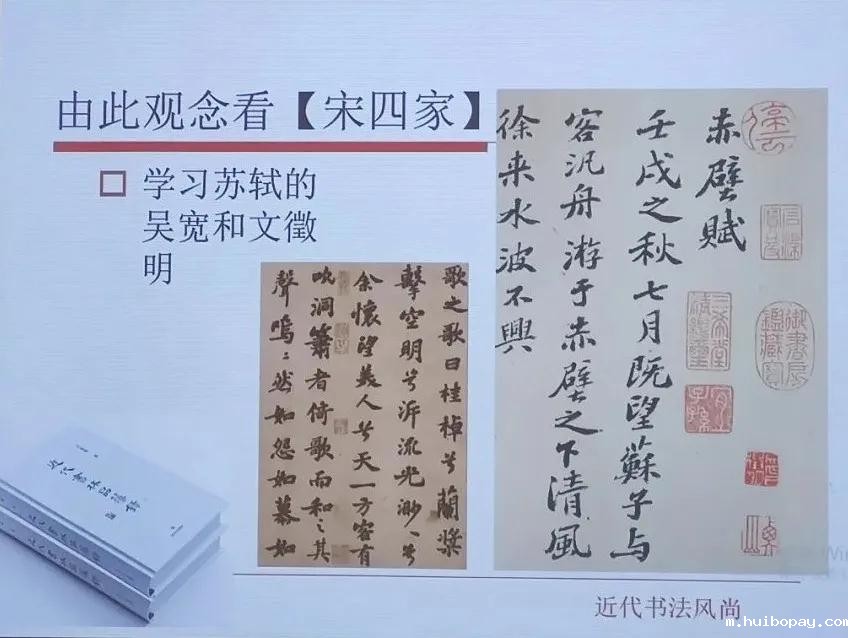 由此观念看【宋四家】
学习苏轼的
吴宽和文徵
明
歌之歌曰桂棹兮蘭槳
擊空明兮泝流光渺丶兮
余懷望美人兮天一方客有
吹洞簫者倚歌而和之其
聲嗚〻然如怨如慕如
赤壁賦
壬戌之秋七月既望蘇子与
客汎舟游于赤壁之下清風
徐来水波不興
御書房
鑑藏寶
三希堂
精鑑璽
宜
子孫
近代书法风尚
m.huibopay.com